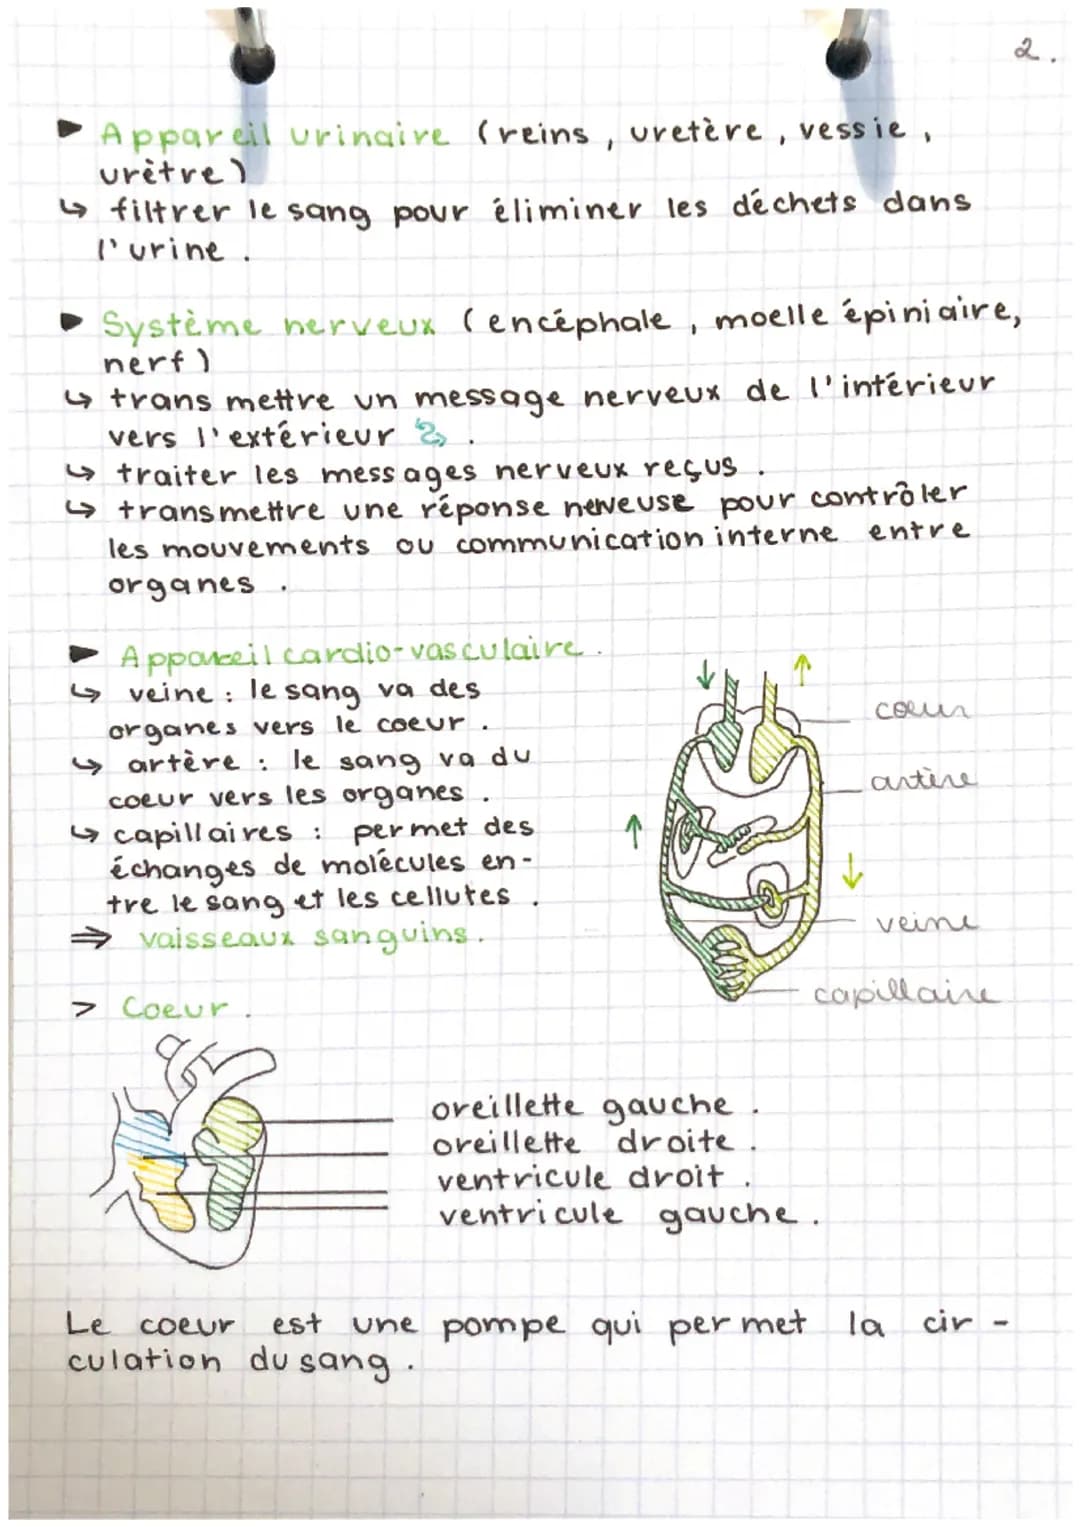 2.
▶ Appareil urinaire (reins, uretère, vessie,
urètre)
↳ filtrer le sang pour éliminer les déchets dans
l'urine.
▶ Système nerveux (encéphale, moelle épiniaire,
nerf)
↳ transmettre un message nerveux de l'intérieur
vers l'extérieur.
↳ traiter les messages nerveux reçus.
↳ transmettre une réponse nerveuse pour contrôler
les mouvements ou communication interne entre
organes.
▶ Appareil cardio-vasculaire.
↳ veine : le sang va des
organes vers le coeur.
↳ artère : le sang va du
coeur vers les organes.
↳ capillaires : permet des
échanges de molécules en-
tre le sang et les cellutes.
⇒ vaisseaux sanguins.
coeur
artère
veine
capillaire
> Coeur.
oreillette gauche.
oreillette droite.
ventricule droit.
ventricule gauche.
Le coeur est une pompe qui permet la cir-
culation du sang.